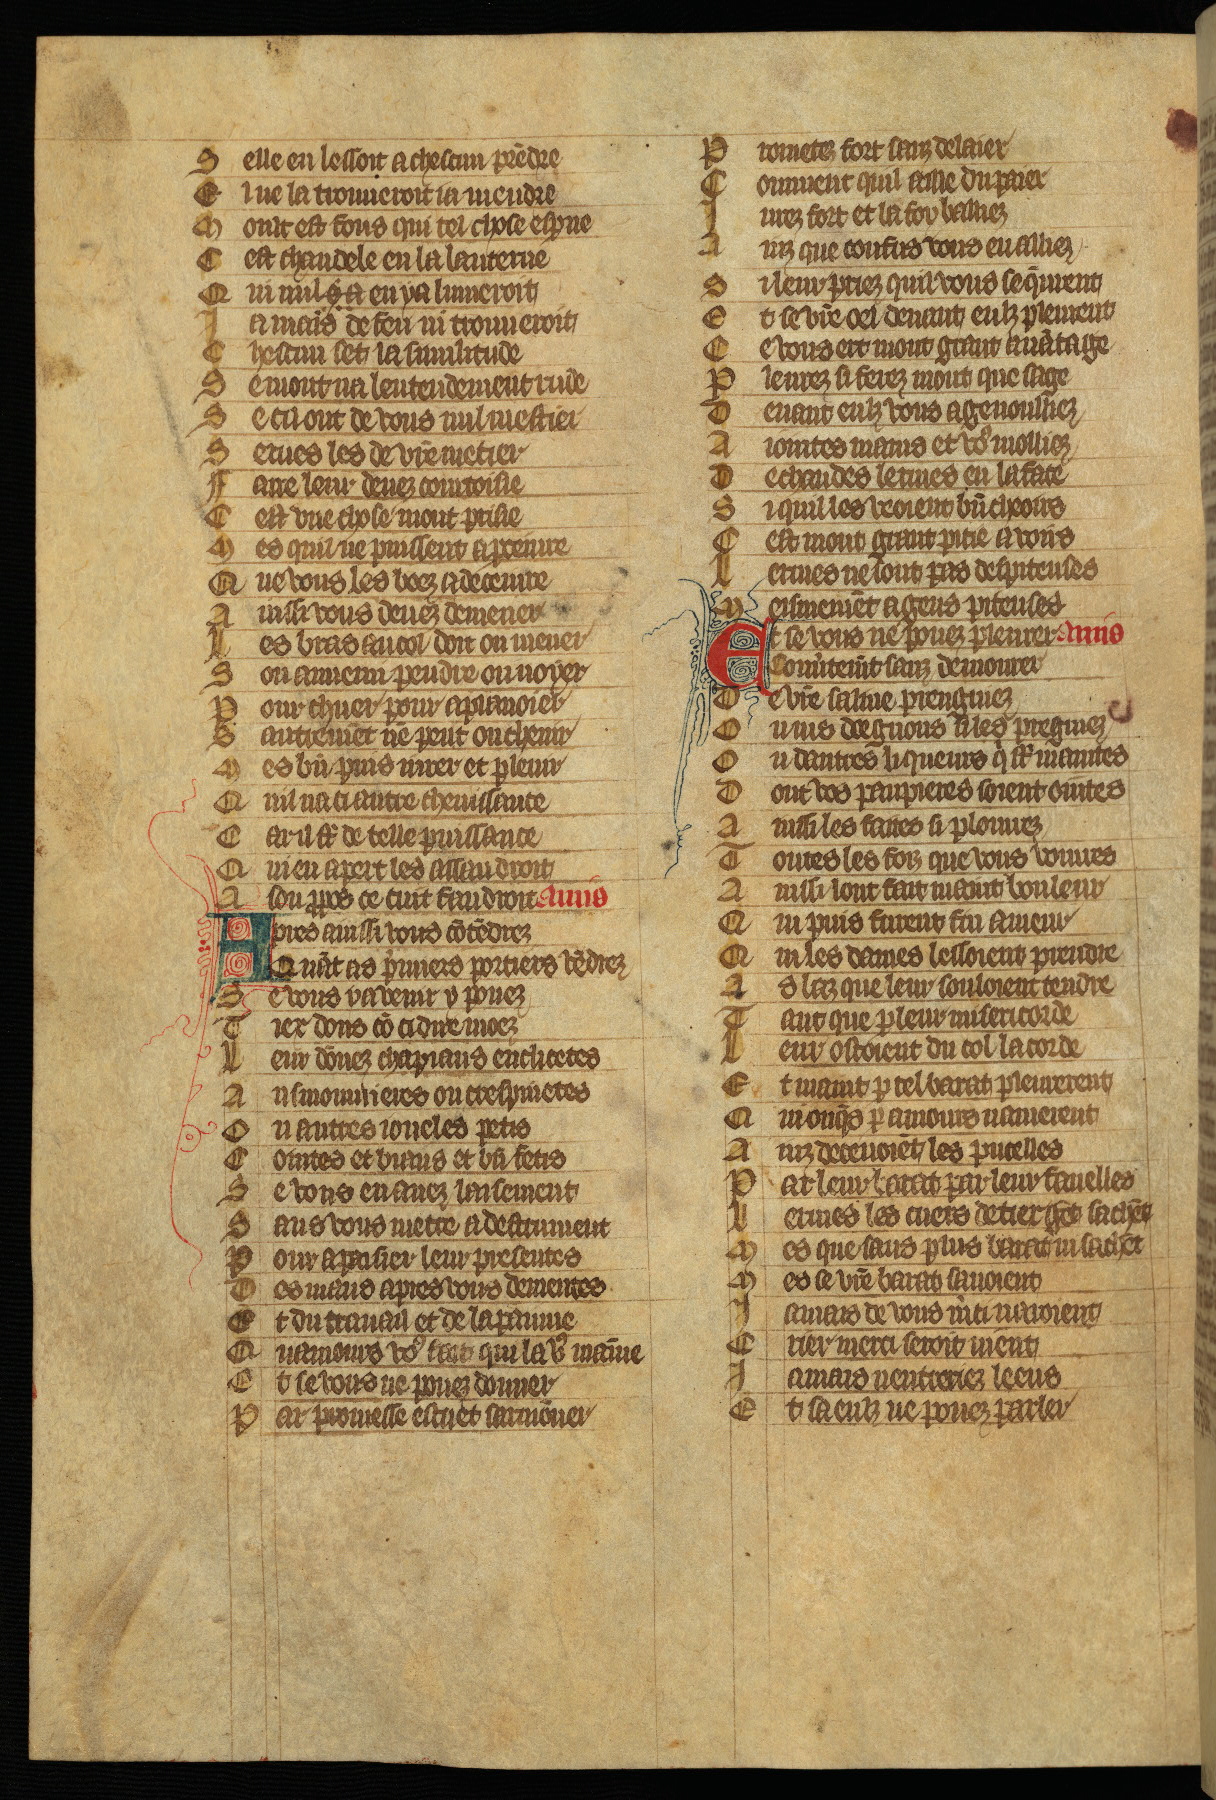 S elle en lessoit a chescun prēdre
E l ne la trouueroit ia mendre
M oult est fous qui tel chose espne
C est chandele en la lanterne
Q ui mil gēs en ya lumeroit
J a mais de feu ni trouueroit
C hescun set la similitude
S e mont na lentendement rude
S e cil ont de vous nul mestier
S erues les de vr̄e metier
F aire leur deuez courtoisie
C est vne chose mont prisie
M es quil ne puissent apcenure
Q ue vous les beez a deceuure
A inssi vous deuez demener
L es bras au col doit on mener
S on annemi pendre ou noyer
P our chuer pour aplanoier
S autremēt ne peut on cheuir
M es bn̄ puis iurer et pleuir
Q nil na ci autre cheuissance
C ar il st de telle puissance
Q ui en apert les assaudroit
A son ppos ce cuit faudroit Amis
Apres ainssi vous cōtēdrez
Q uāt as pmiers portiers vēdrez
S e vous y avenir y pouez
T iex dons cō ci dire moez
L eur dōnez chapiaus en clicetes
A usmonnieres ou crespinetes
O u autres ioueles petis
C ointes et biaus et bn̄ fetis
S e vous en auez laisement
S ans vous metre a destruiment
P our apaisier leur presentes
D es maus apres vous dementes
E t du trauail et de la painne
Q uamours vo9 fait qui la vo9 mainne
E t se vous ne pouez donner
P ar promesse estuet sarmōner
P rometez fort sanz delaier
C omment quil aille du paier
J urez fort et la foy bailliez
A inz que confus vous en ailliez
S i leur priez quil vous seq̄urent
E t se vr̄e oel deuant eulz pleurent
C e vous ert mont grant auātage
P leurez si ferez mont que sage
D euant eulz vous agenoulliez
A iointes mains et vo9 molliez
D e chaudes lermes en la face
S i quil les voient bn̄ cheoirs
C est mont grant pitie a voirs
L ermes ne sont pas despiteuses
M eismemēt a gens piteuses
Et se vous ne pouez pleurer Amis
Couutemēt sanz demourer
D e vr̄e saliue preigniez
O u ius doegnons si les pregniez
O u dautres liqueurs q̄ st maintes
D ont vos paupieres soient ointes
A inssi les faites si plourrez
T outes les foiz que vous vourres
A inssi lont fait maint bouleur
Q ui puis furent fin ameur
Q ui les dames lessoient prendre
A s laz que leur souloient tendre
T ant que p leur misericorde
L eur ostoient du col la corde
E t maint p tel barat pleurerent
Q ui onq̄s p amours namerent
A inz deceuoiēt les pucelles
P ar leur barat par leur fauelles
L ermes les cuers de tiex gēs sachēt
M es que sans plus barat ni sachēt
M es se vr̄e barat sauoient
J amais de vous m̄ci nauroient
C rier merci seroit nient
J amais nentreriez leens
E t sa eulz ne pouez parler